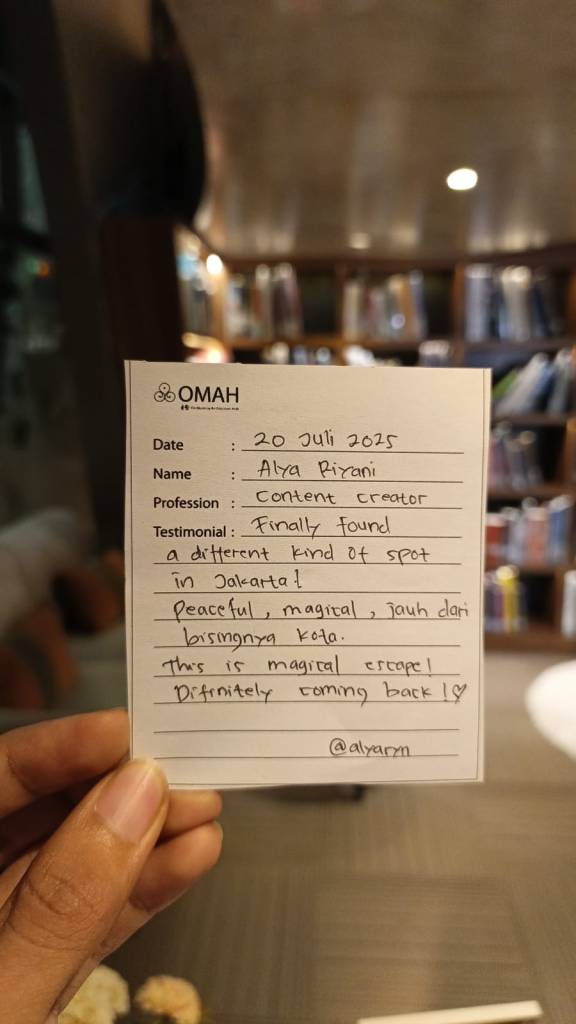 OMAH
Date : 20 Juli 2025
Name : Alya Riyani
Profession : Content creator
Testimonial : Finally found
a different kind of spot
in Jakarta!
Peaceful, magical, jauh dari
bisingnya kota.
This is magical escape!
Difinitely coming back!♡
@alyaryn